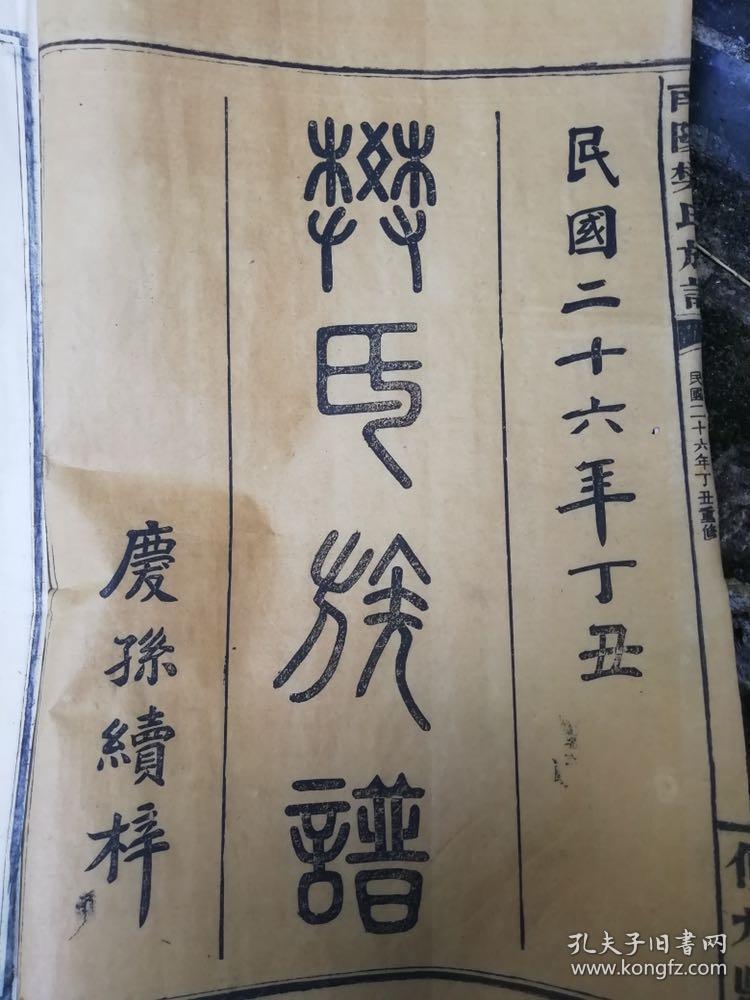 南陽樊氏族譜
民國二十六年丁丑重修
民國二十六年丁丑
樊氏族譜
慶孫續梓
孔夫子旧書网
www.kongfz.com